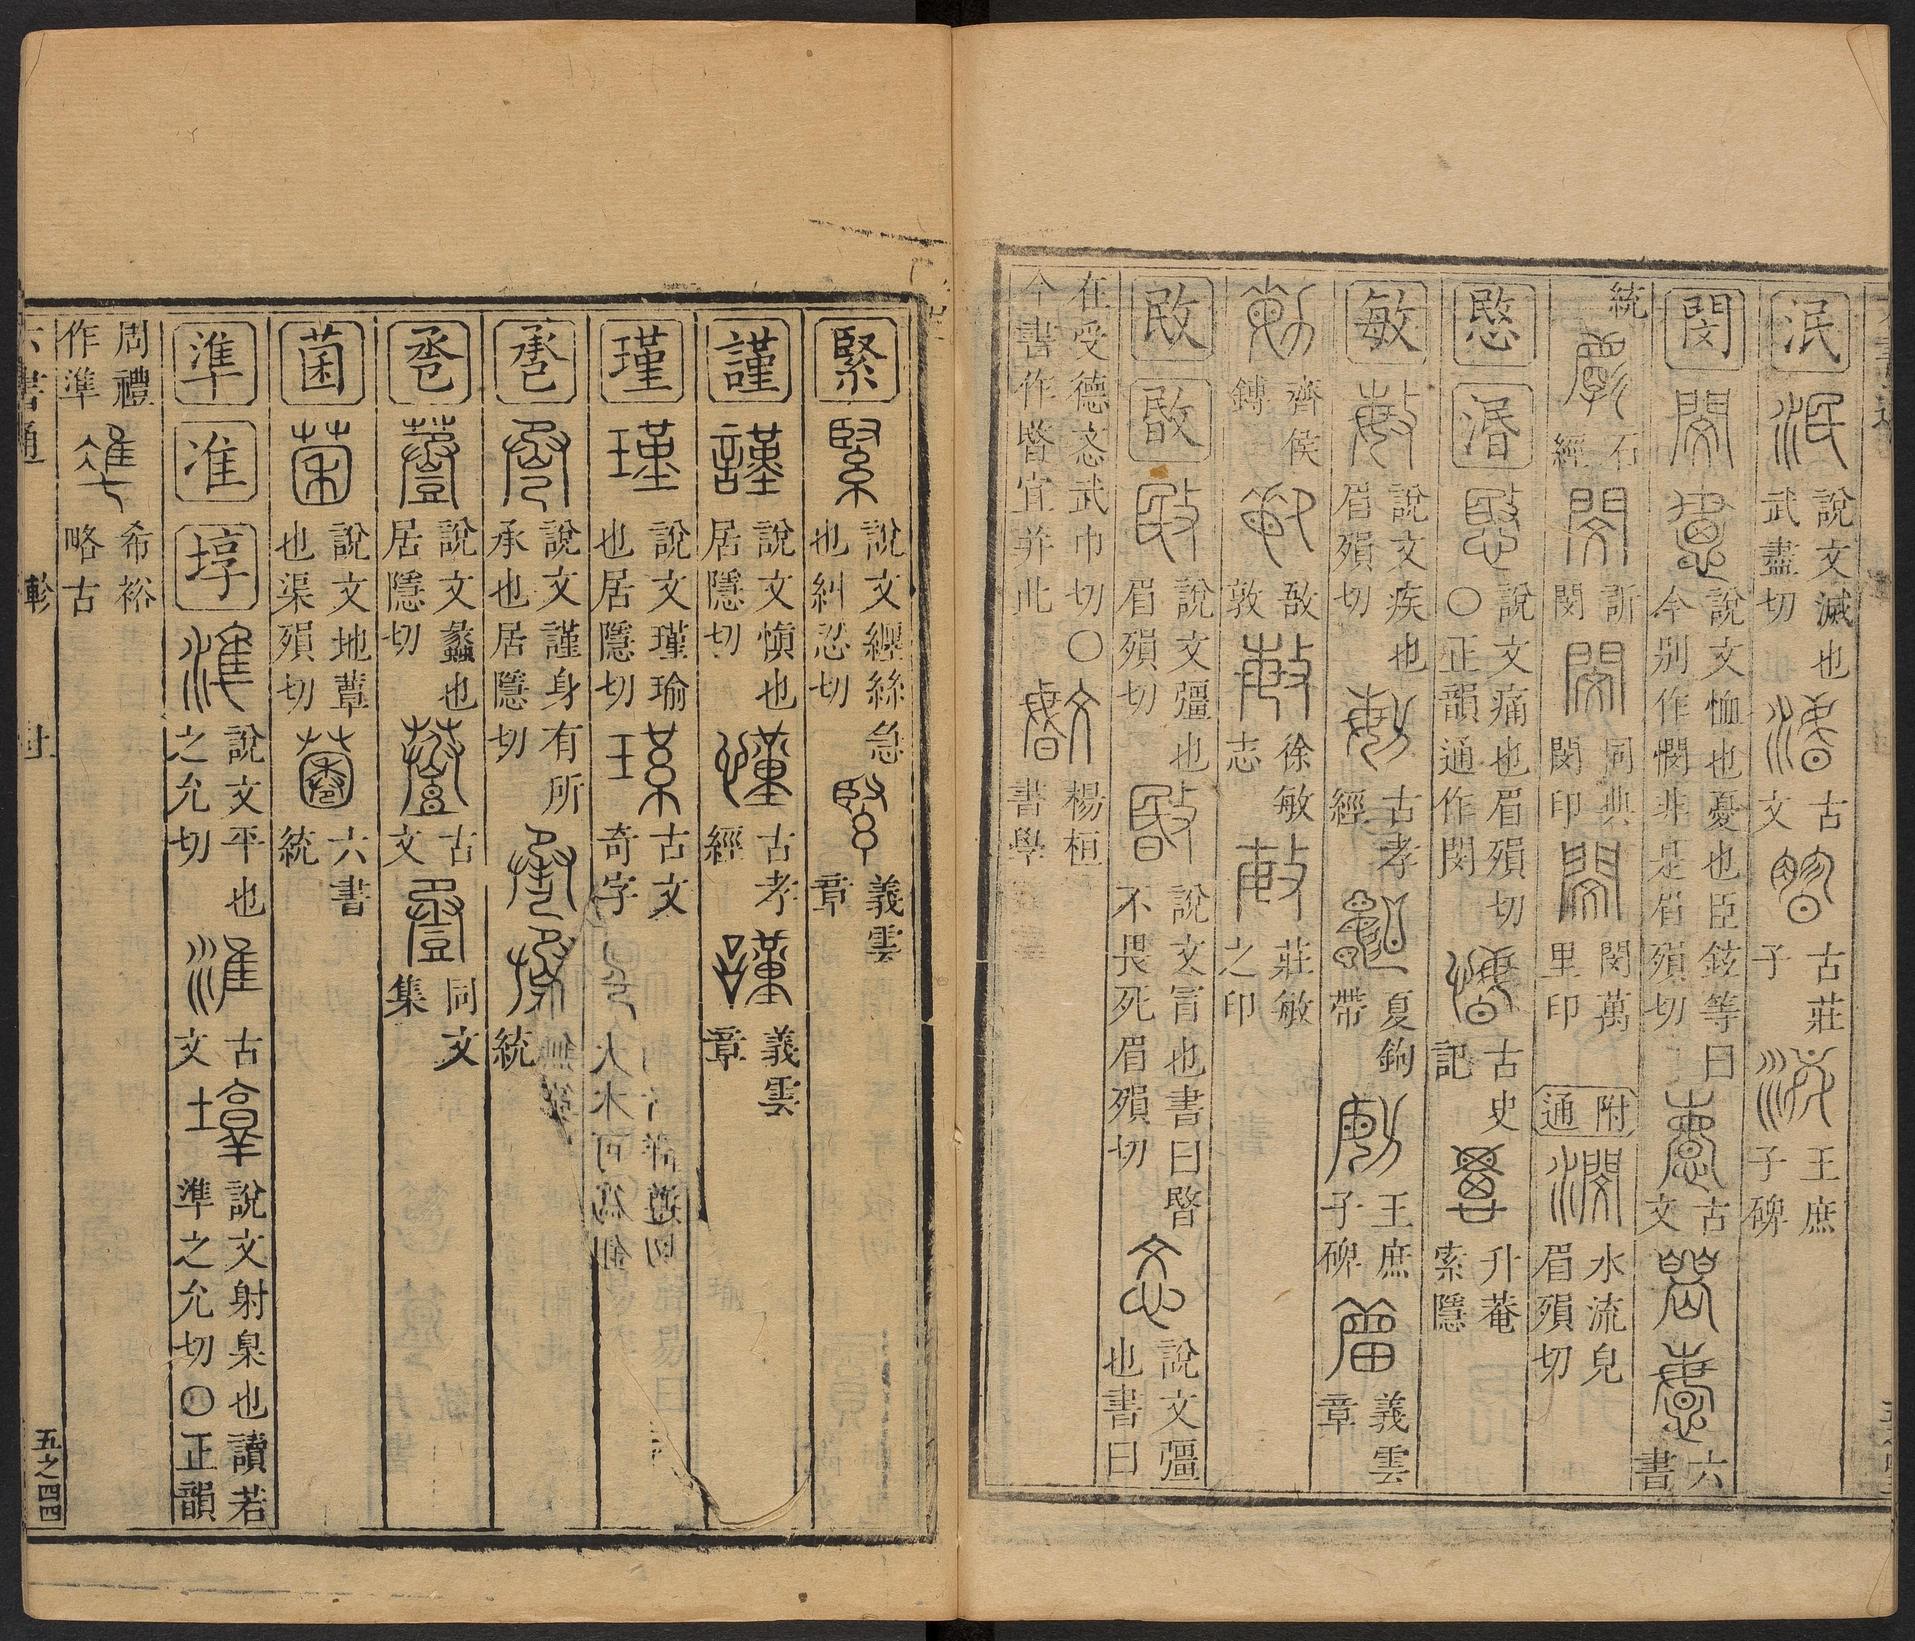 泯 說文滅也武盡切 古文 古莊子 王庶子碑
閔 說文恤也憂也臣鉉等曰今别作憫非是眉殞切 古文 六書
統 石經 訢閔 同典閔印 閔萬里印 附通 水流皃眉殞切
愍 湣 說文痛也眉殞切〇正韻通作閔 古史記 升菴索隱
敏 說文疾也眉殞切 古孝經 夏鉤帶 王庶子碑 義雲章
齊侯鎛 敔敦 徐敏志 莊敏之印
敃 敯 說文彊也眉殞切 說文冒也書曰暋不畏死眉殞切 說文彊也書曰
在受德忞武巾切〇 今書作暋宜并此 楊桓書學
緊 說文纏絲急也糾忍切 義雲章
謹 說文愼也居隱切 古孝經 義雲章
瑾 說文瑾瑜也居隱切 古文奇字
𢀿 說文謹身有所承也居隱切 統
說文蠡也居隱切 古文 同文集
菌 說文地蕈也渠殞切 六書統
準 准 埻 說文平也之允切 古文 說文射臬也讀若準之允切〇正韻
周禮作準 希裕略古
六書通 軫 五之四四